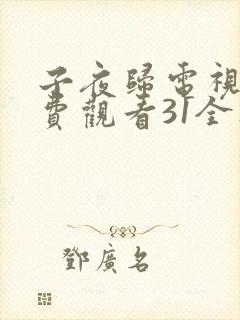 子夜歸電視
費觀看31全
鄧廣名